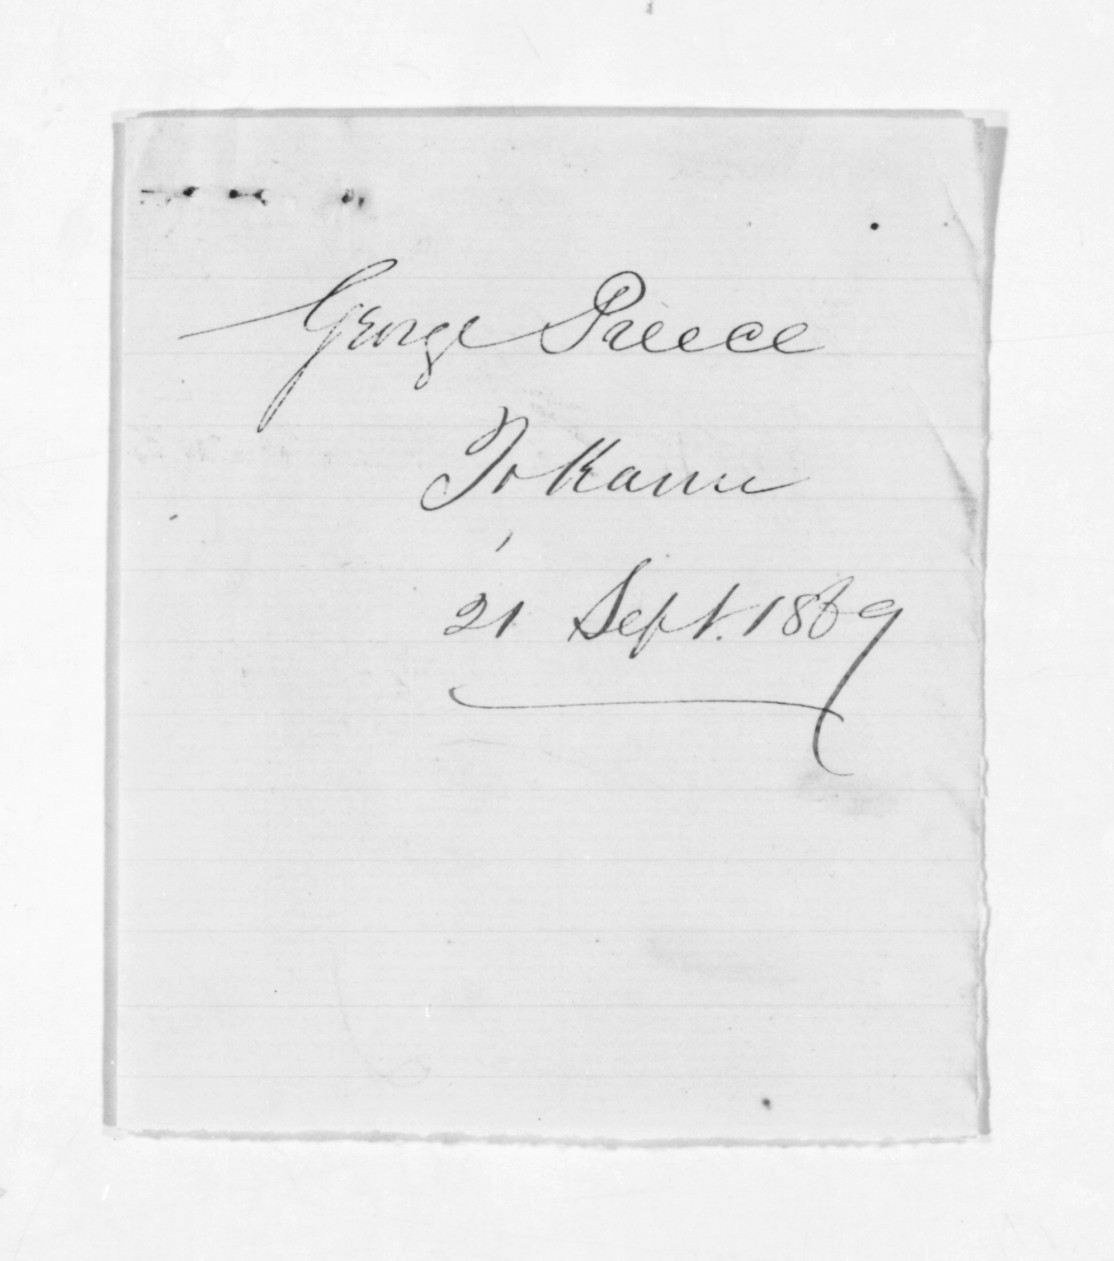 George Preece
Tokanu
21 Sept. 1869